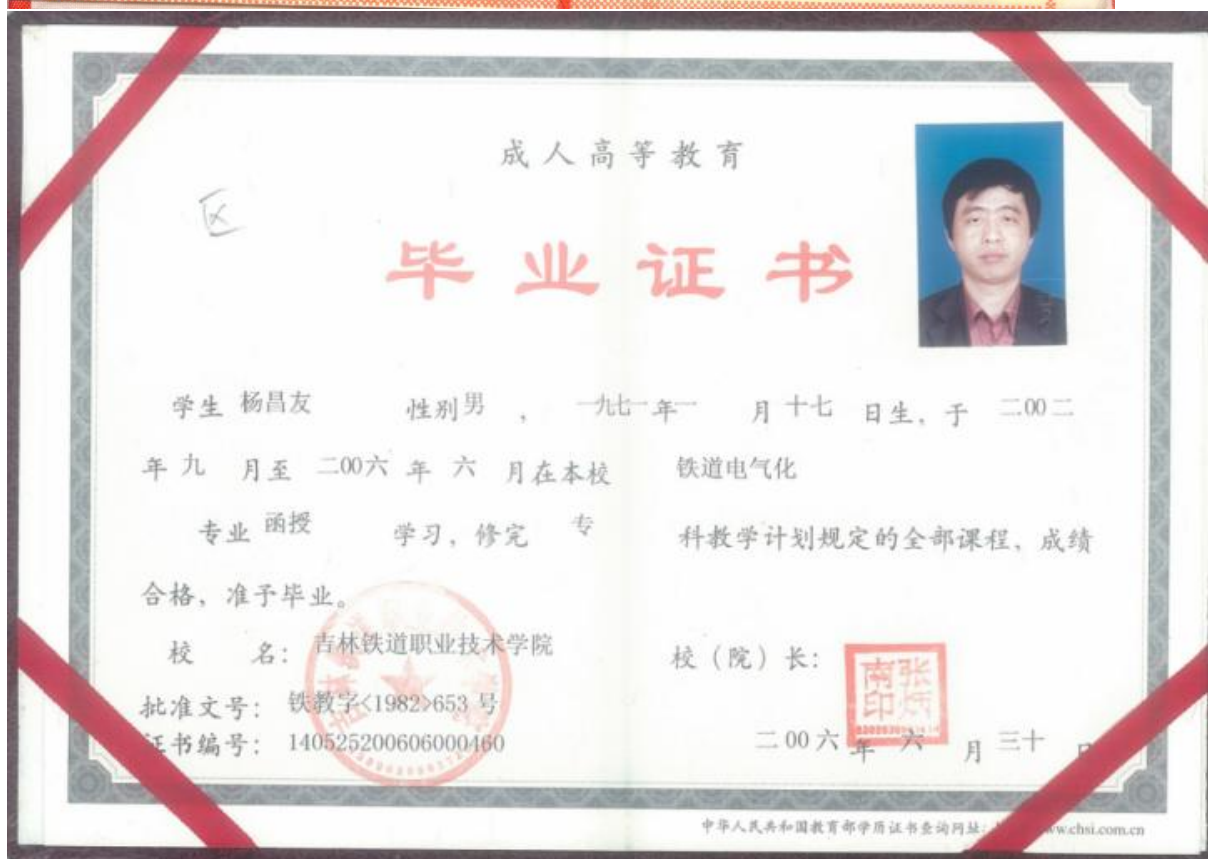 成人高等教育
区
毕业证书
学生 杨昌友 性别 男 , 一九七一 年 一 月 十七 日生, 于 二00二
年 九 月至 二00六 年 六 月在本校 铁道电气化
专业 函授 学习, 修完 专 科教学计划规定的全部课程、成绩
合格, 准予毕业。
校 名: 吉林铁道职业技术学院 校(院)长:
张炳南印
批准文号: 铁教字<1982>653 号
证书编号: 140525200606000460 二00六 年 六 月 三十
中华人民共和国教育部学历证书查询网址: ww.chsi.com.cn